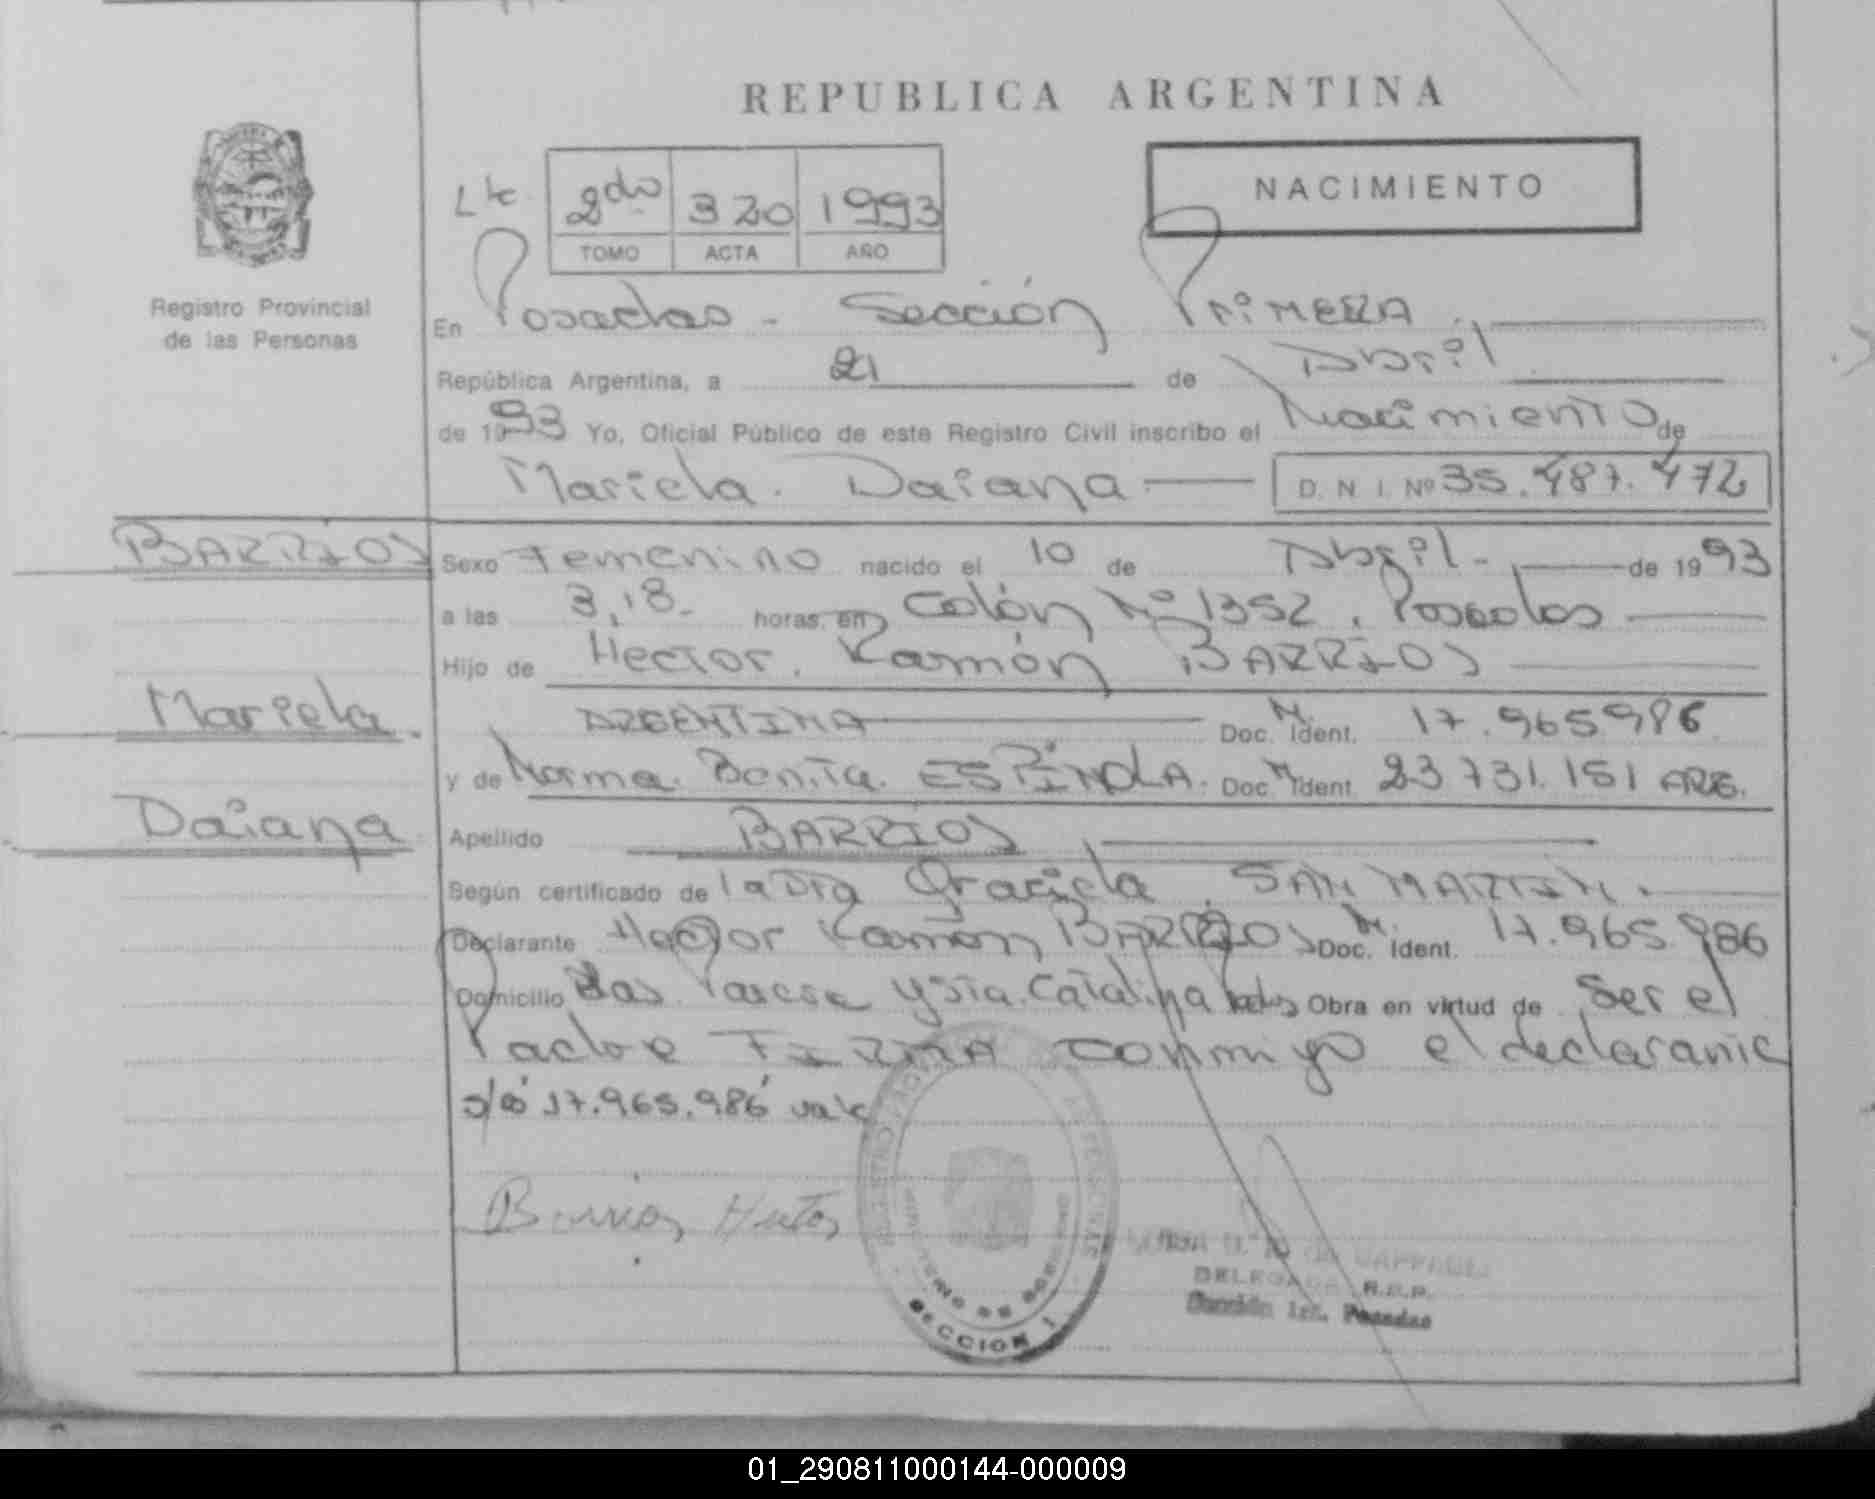 REPUBLICA ARGENTINA
NACIMIENTO
Lte 2do 320 1993
TOMO ACTA AÑO
Registro Provincial
de las Personas
En Posadas - Sección PRiMERA
República Argentina, a 21 de Abril
de 1993 Yo, Oficial Público de este Registro Civil inscribo el Nacimiento de
Mariela. Daiana D. N. I. Nº 35.487.472
BARRIOS
Sexo Femenino nacido el 10 de Abril - de 1993
a las 3,18- horas, en Colón Nº 1352, Posadas
Hijo de Hector. Ramón BARRIOS
Mariela.
ARGENTINA Doc. M. Ident. 17.965986
y de Norma. Benita. ESPÍNOLA. Doc. M. Ident. 23 731.151 ARG.
Daiana
Apellido BARRIOS
Según certificado de la Dra Graciela SAN MARTIN.
Declarante Hector Ramon BARRIOS Doc. M. Ident. 17.965.986
Domicilio y Sta. Catalina Obra en virtud de Ser el
Padre FIRMA conmigo el declarante
s/é 17.965.986 vale
Barrios Hector
SECCION 1
DELEGADA R.P.P.
Sección 1ra. Posadas
01_290811000144-000009